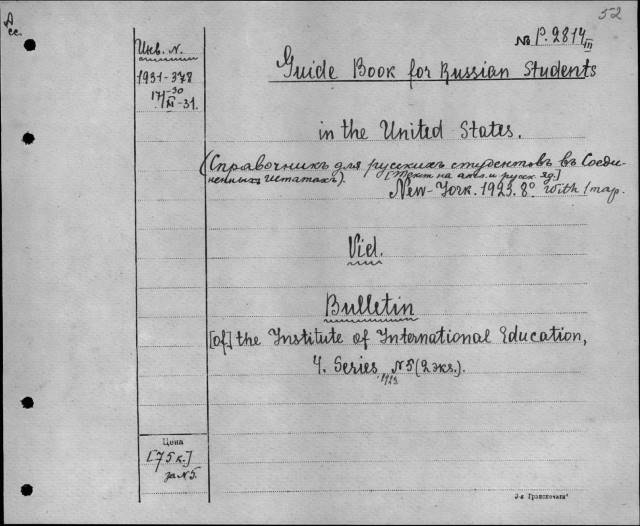 52
№ P.2814
III
Инв. N.
1931-378
Guide Book for Russian Students
in the United States.
(Справочникъ для русскихъ студентовъ въ Соеди-
ненныхъ Штатахъ). [Текст на англ. и русск. яз.]
New-York. 1923. 8° with 1 map.
Vid.
Bulletin
[of] the Institute of International Education,
4. Series 1923 N5 (2 экз.).
Цена
[75 к.]
за N5.